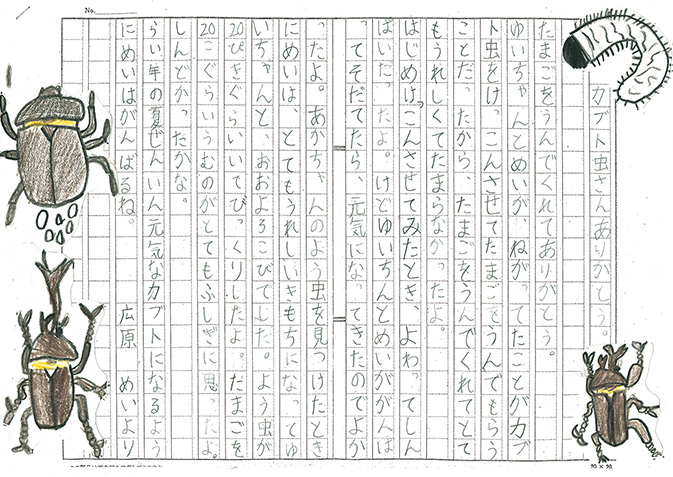 No.
カブト虫さんありがとう。
たまごをうんでくれてありがとう。
ゆいちゃんとめいが、ねがってたことがカブ
ト虫をけっこんさせてたまごをうんでもらう
ことだったから、たまごをうんでくれてとて
もうれしくてたまらなかったよ。
はじめけっこんさせてみたとき、よわってしん
ぱいだったよ。けどゆいちんとめいががんば
ってそだてたら、元気になってきたのでよか
ったよ。あかちゃんのよう虫を見つけたとき
にめいは、とてもうれしいきもちになってゆ
いちゃんと、おおよろこびでした。よう虫が
20ぴきぐらいいてびっくりしたよ。たまごを
20こぐらいうむのがとてもふしぎに思ったよ。
しんどかったかな。
らい年の夏ぜんいん元気なカブトになるよう
にめいはがんばるね。 広原 めいより
20×20